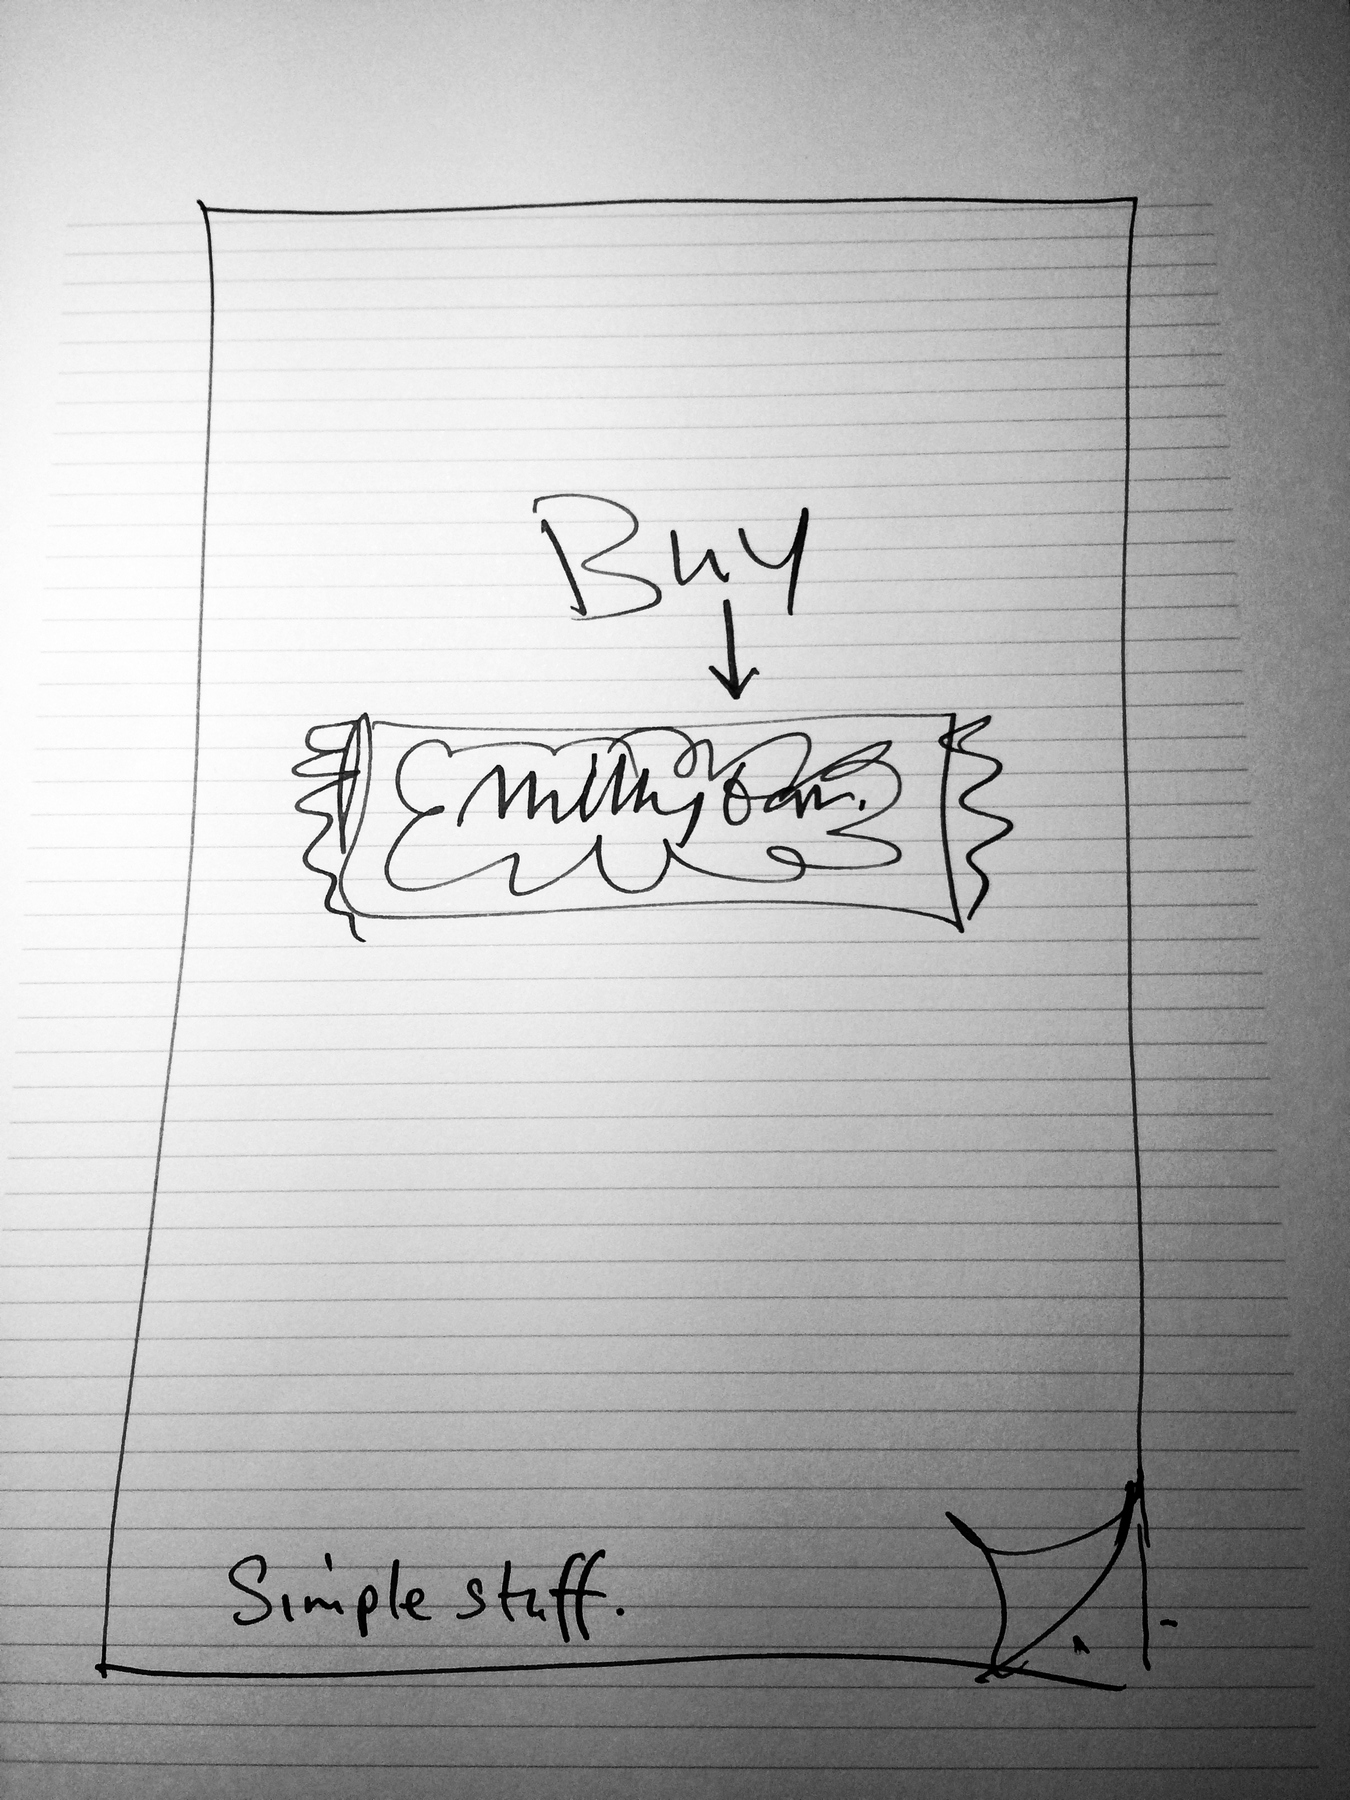 Buy
Milky Bar.
Simple stuff.